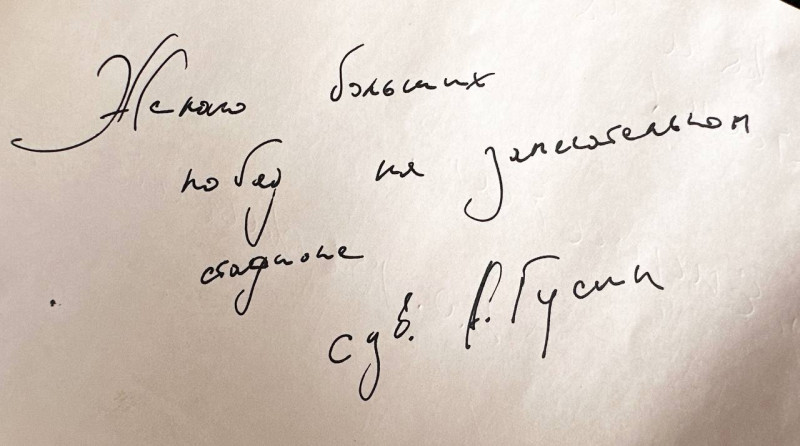 Желаю больших
побед на замечательном
стадионе
с ув. Г. Гусин